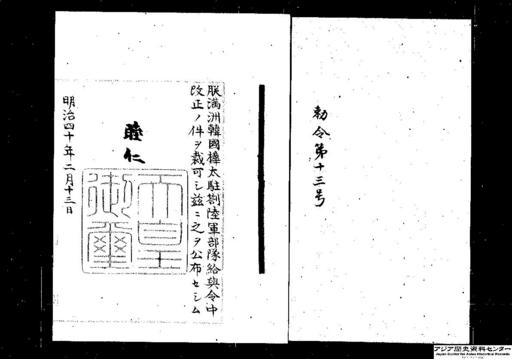 勅令第十三号
朕満洲韓國樺太駐劄陸軍部隊給與令中
改正ノ件ヲ裁可シ玆ニ之ヲ公布セシム
睦仁
天皇
御璽
明治四十年二月十三日
アジア歴史資料センター
Japan Center for Asian Historical Records